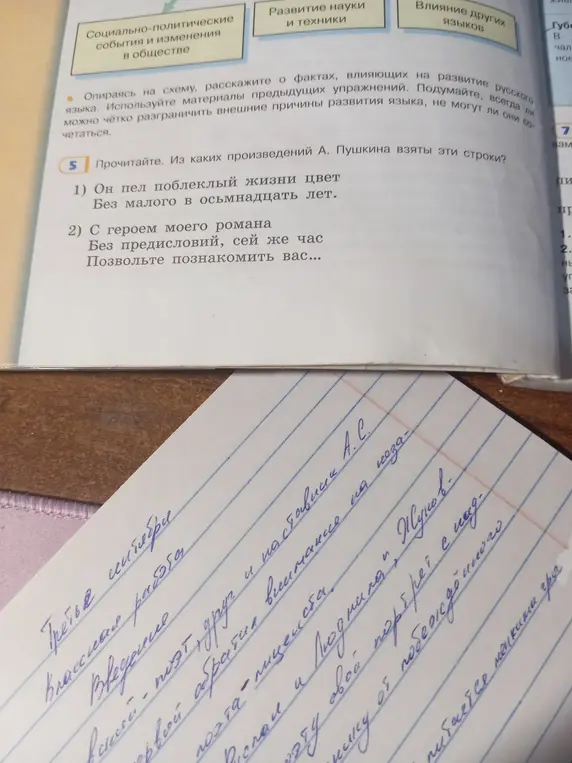 Социально-политические
события и изменения
в обществе
Развитие науки
и техники
Влияние других
языков
• Опираясь на схему, расскажите о фактах, влияющих на развитие русского
языка. Используйте материалы предыдущих упражнений. Подумайте, всегда ли
можно чётко разграничить внешние причины развития языка, не могут ли они со-
четаться.
5 Прочитайте. Из каких произведений А. Пушкина взяты эти строки?
1) Он пел поблеклый жизни цвет
Без малого в осьмнадцать лет.
2) С героем моего романа
Без предисловий, сей же час
Позвольте познакомить вас...
7
1.
2.
Классная работа
Введение
поэт, друг и наставник А. С.
первой обратил внимание на
поэта-лицеиста.
и Людмила", Жуков-
поэту свой портрет с над-
от побеждённого